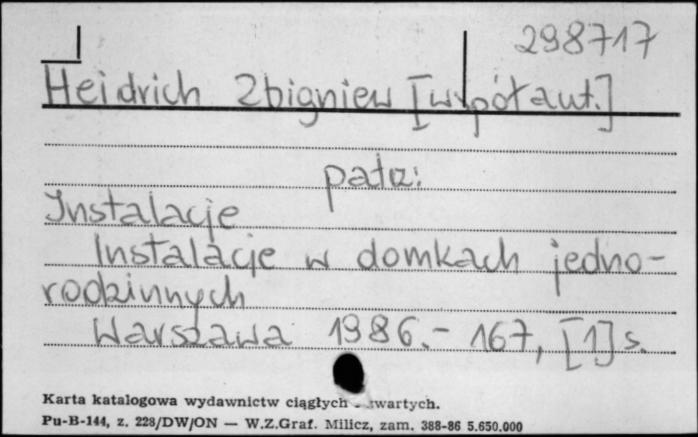 298717
Heidrich Zbigniew [współaut.]
patrz:
Instalacje
Instalacje w domkach jedno-
rodzinnych
Warszawa 1986.- 167, [1] s.
Karta katalogowa wydawnictw ciągłych zwartych.
Pu-B-144, z. 228/DW/ON — W.Z.Graf. Milicz, zam. 388-86 5.650.000